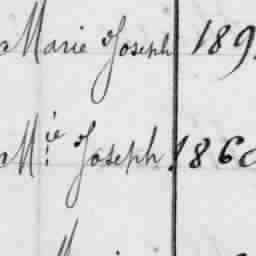 Marie Joseph 189
Mie Joseph 186